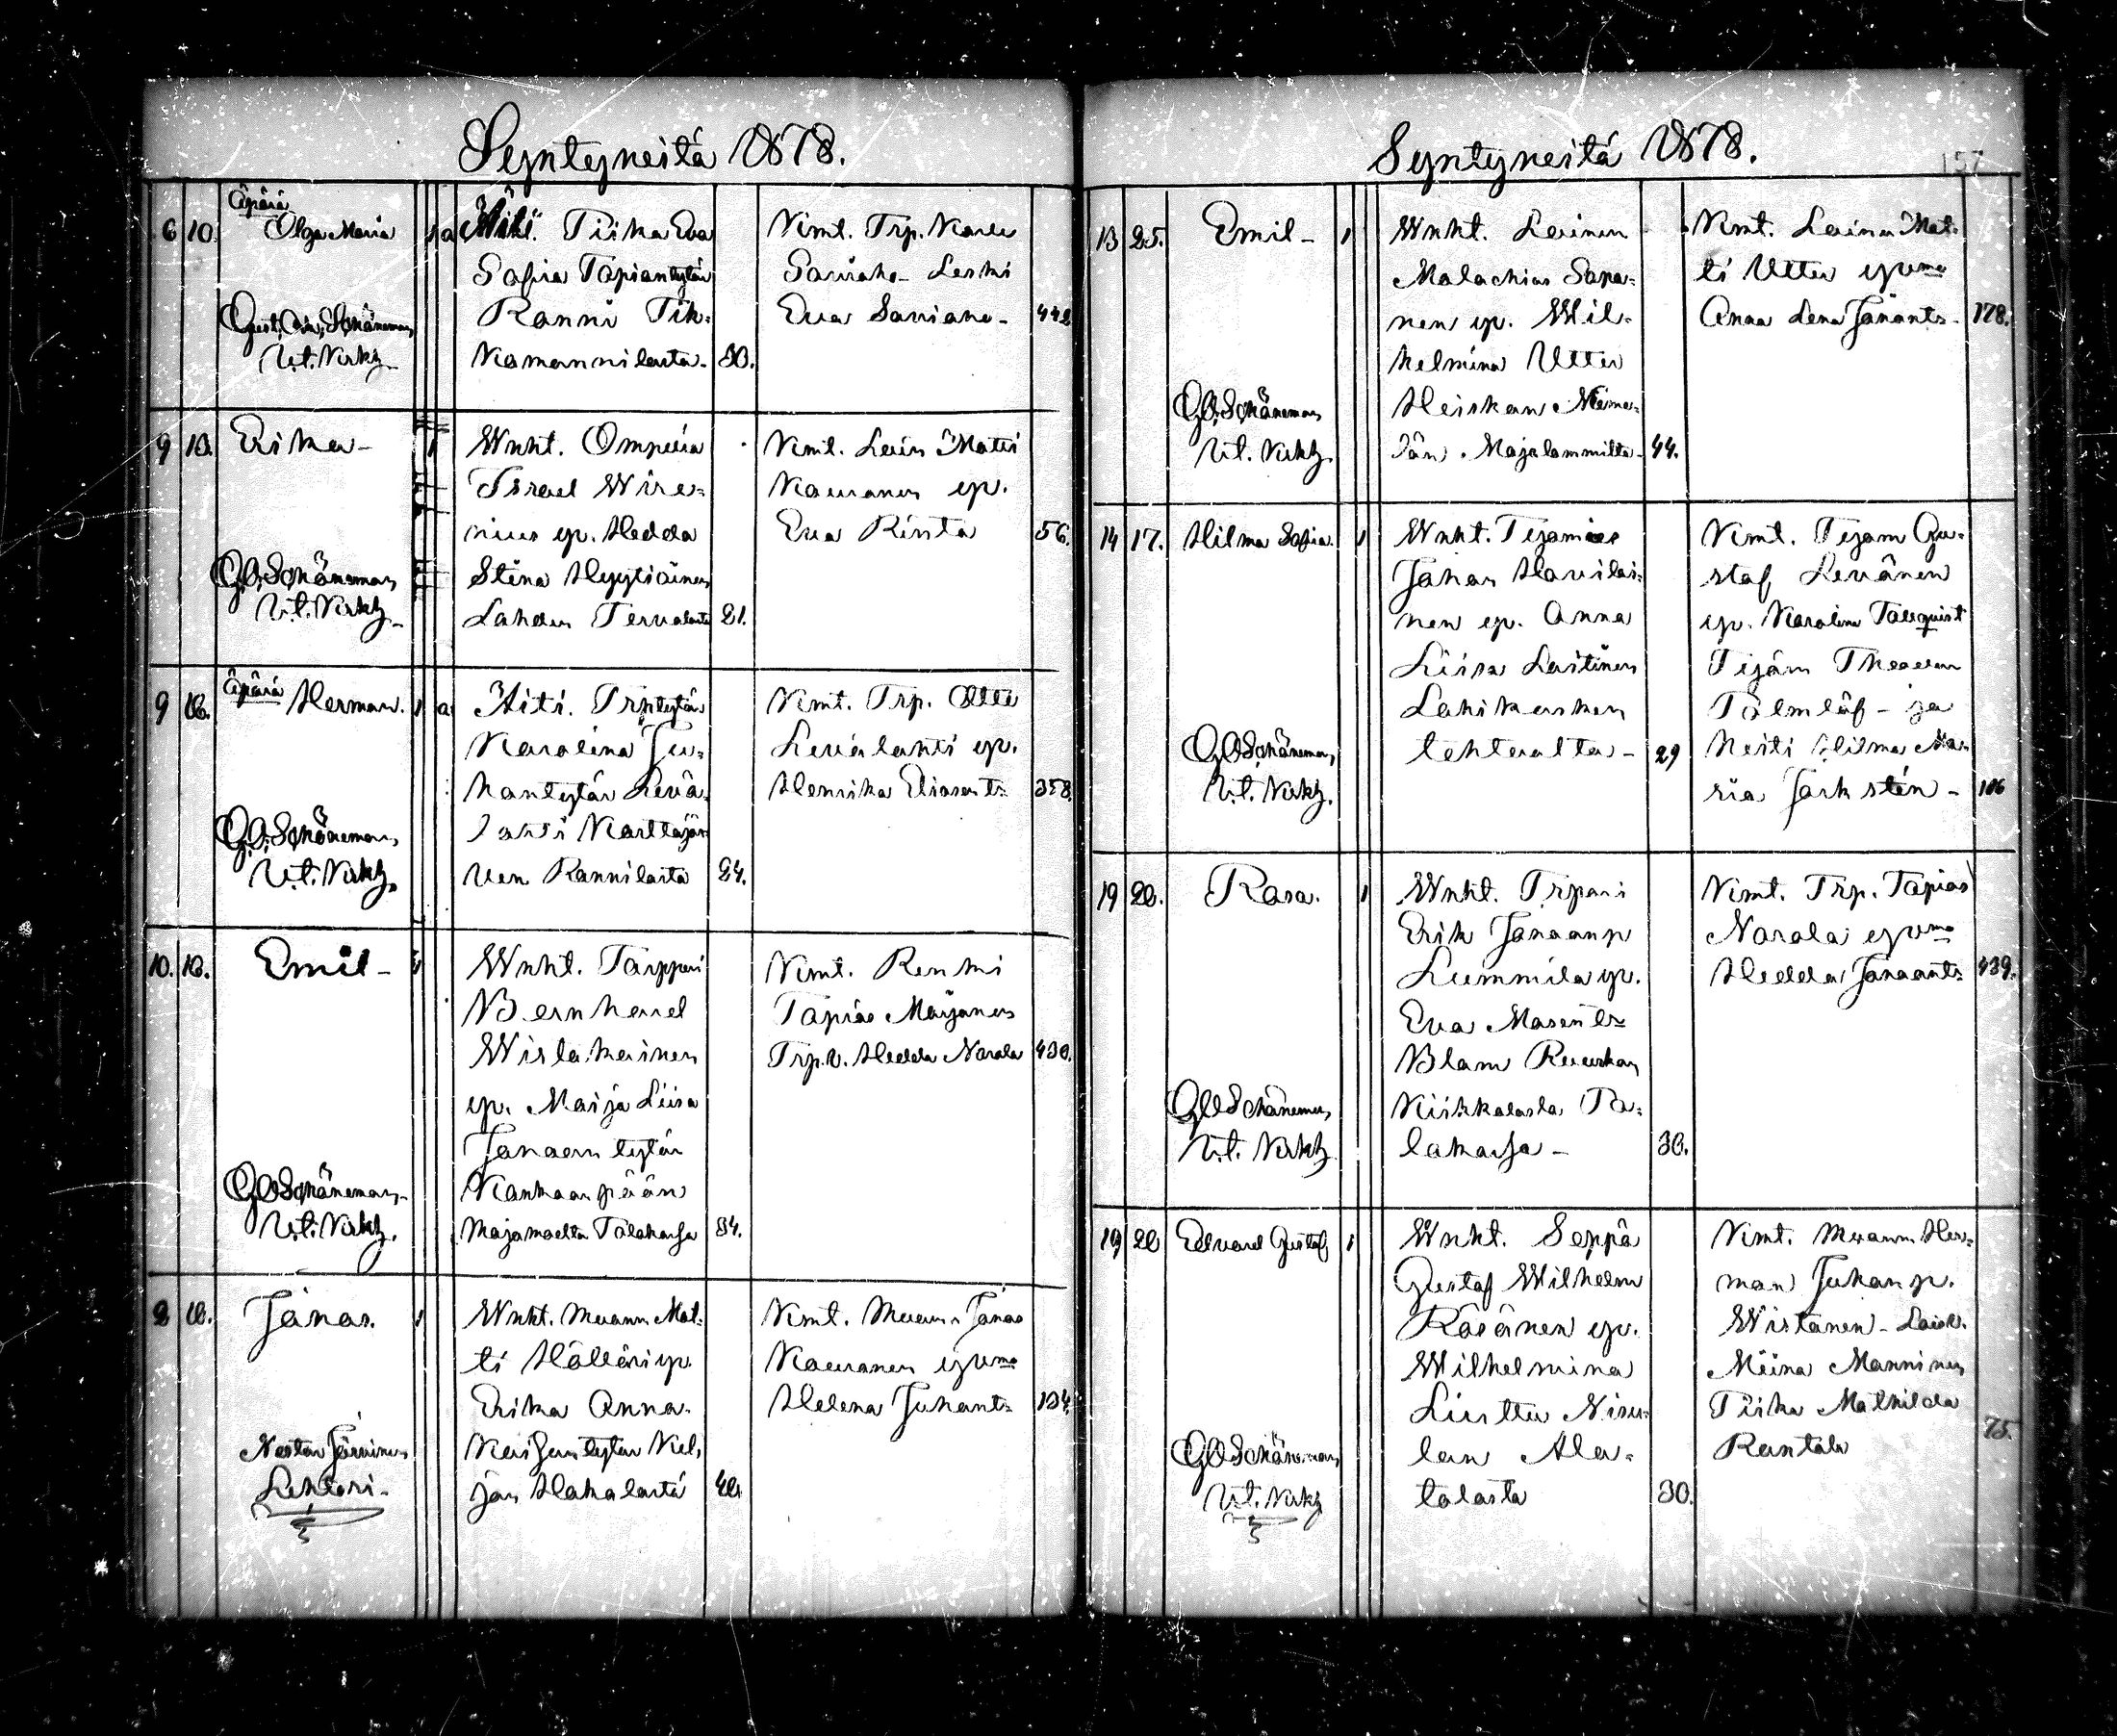 Syntyneitä 1878.
Äpärä
6 10. Olga Maria 1 a Äiti. Tiika Eva
Sofia Tapiantytär
Ranni Tik-
kamannilasta - 30.
Kmt. Trp. Kalle
Sauraho - Leski
Eva Sauraho - 442
Gust. Osw. Schöneman
V.t. Kirkh.
9 13. Erika - 1 Wnht. Ompelia
Israel Wire-
nius vp. Hedda
Stina Hyytiäinen
Lahden Tervalasta 21.
Kmt. Leiv. Matti
Kauranen vp.
Eva Rinta 56.
G.O. Schöneman,
V.t. Kirkh.
Äpärä
9 16. Herman. 1 a Äiti. Trptytär
Karolina Ju-
hantytär Levä-
lahti Karttajär-
ven Rannilasta 24.
Kmt. Trp. Otto
Levälahti vp.
Henrika Eliasent. 358.
G.O. Schöneman,
V.t. Kirkh.
10. 16. Emil - 1 Wnht. Torppari
Bernhard
Wislakainen
vp. Maija Liisa
Jonaan tytär
Kankaanpään
Majamaelta Talakasja 34.
Kmt. Renki
Tapias Marjanen
Trp.v. Hedda Narala 430.
G.O. Schöneman,
V.t. Kirkh.
2 16. Jonas. 1 Wnht. Muann. Mat-
ti Hölleri vp.
Erika Anna
Keisjantytär Kul-
jun Hakalasta 40.
Kmt. Muann. Jonas
Kauranen vpvmo
Helena Juhant. 134.
Nestor Järvinen
Lehtori.
Syntyneitä 1878. 157
13 25. Emil - 1 Wnht. Leivuri
Malachias Sapa-
nen vp. Wil-
helmina Utter
Heiskan Nieme-
län Majalammilta - 44.
Kmt. Leivuri Mat-
ti Utter vpvmo
Anna Lena Jonant. - 178.
G.O. Schöneman
V.t. Kirkh.
14 17. Hilma Sofia. 1 Wnht. Työmies
Johan Havilai-
nen vp. Anna
Liisa Laitinen
Lahikosken
tehtaalta - 29
Kmt. Työm. Gu-
staf Levänen
vp. Karolina Tallquist
Työm. Theodor
Palmlöf - ja
Neiti Hilma Ma-
ria Jackstén - 106
G.O. Schöneman,
V.t. Kirkh.
19 20. Rosa. 1 Wnht. Trpari
Erik Jonaanp
Lummila vp.
Eva Masentr
Blom Ruuskan
Kiikkalasta Ta-
lakasja - 30.
Kmt. Trp. Tapias
Narala vpvmo
Hedda Jonaant. 439.
G.O. Schöneman,
V.t. Kirkh.
19 20 Edvard Gustaf 1 Wnht. Seppä
Gustaf Wilhelm
Räsänen vp.
Wilhelmina
Liisttu Nisu-
lan Ala-
talasta 30.
Kmt. Muann. Her-
man Juhanp.
Wistanen - Laisk.
Miina Manninen
Tiika Mathilda
Rantala 75.
G.O. Schöneman,
V.t. Kirkh